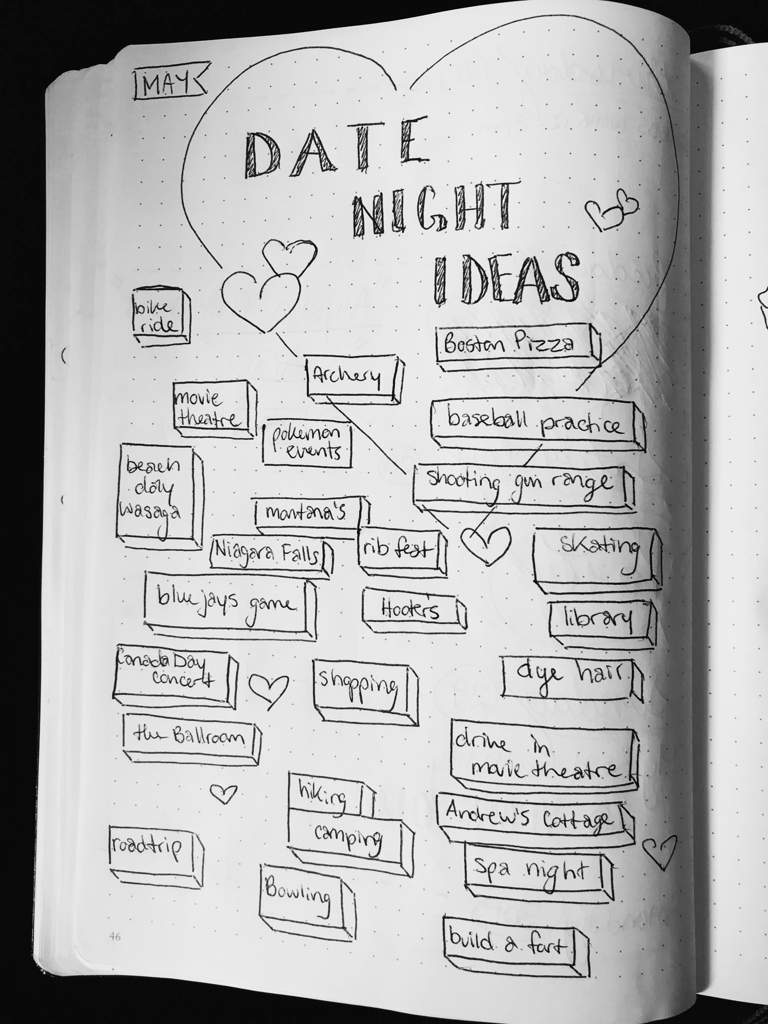 MAY
DATE
NIGHT
IDEAS
bike
ride
Boston Pizza
Archery
movie
theatre
baseball practice
pokemon
events
beach
day
wasaga
shooting gun range
montana's
Niagara Falls
rib fest
skating
blue jays game
Hooter's
library
Canada Day
concert
shopping
dye hair
the Ballroom
drive in
movie theatre
hiking
camping
Andrew's Cottage
roadtrip
spa night
Bowling
build a fort
46